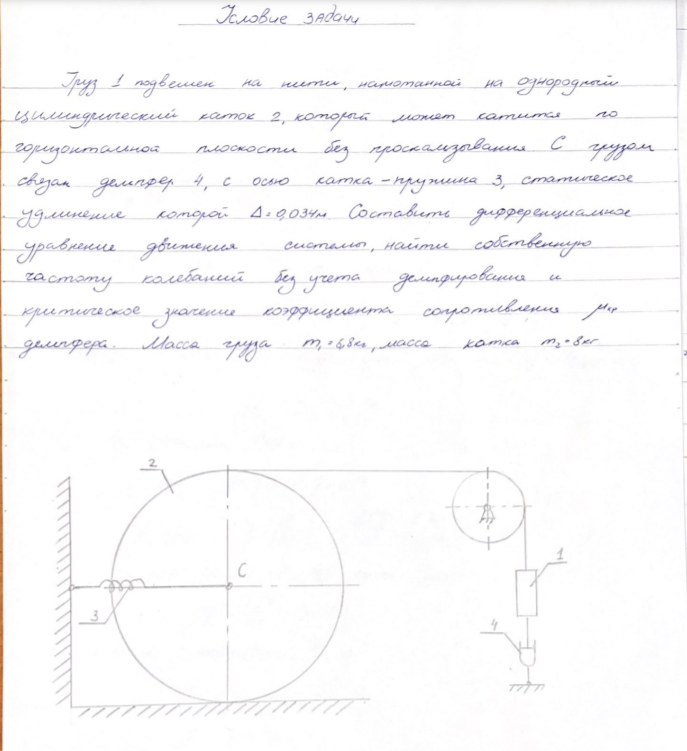 Условие задачи
Груз 1 подвешен на нити, намотанной на однородный
цилиндрический каток 2, который может катится по
горизонтальной плоскости без проскальзывания С грузом
связан демпфер 4, с осью катка - пружина 3, статическое
удлинение которой Δ=0,034м Составить дифференциальное
уравнение движения системы, найти собственную
частоту колебаний без учета демпфирования и
критическое значение коэффициента сопротивления μкр
демпфера. Масса груза m₁= ,8кг, масса катка m₂=8кг
2
C
1
3
4